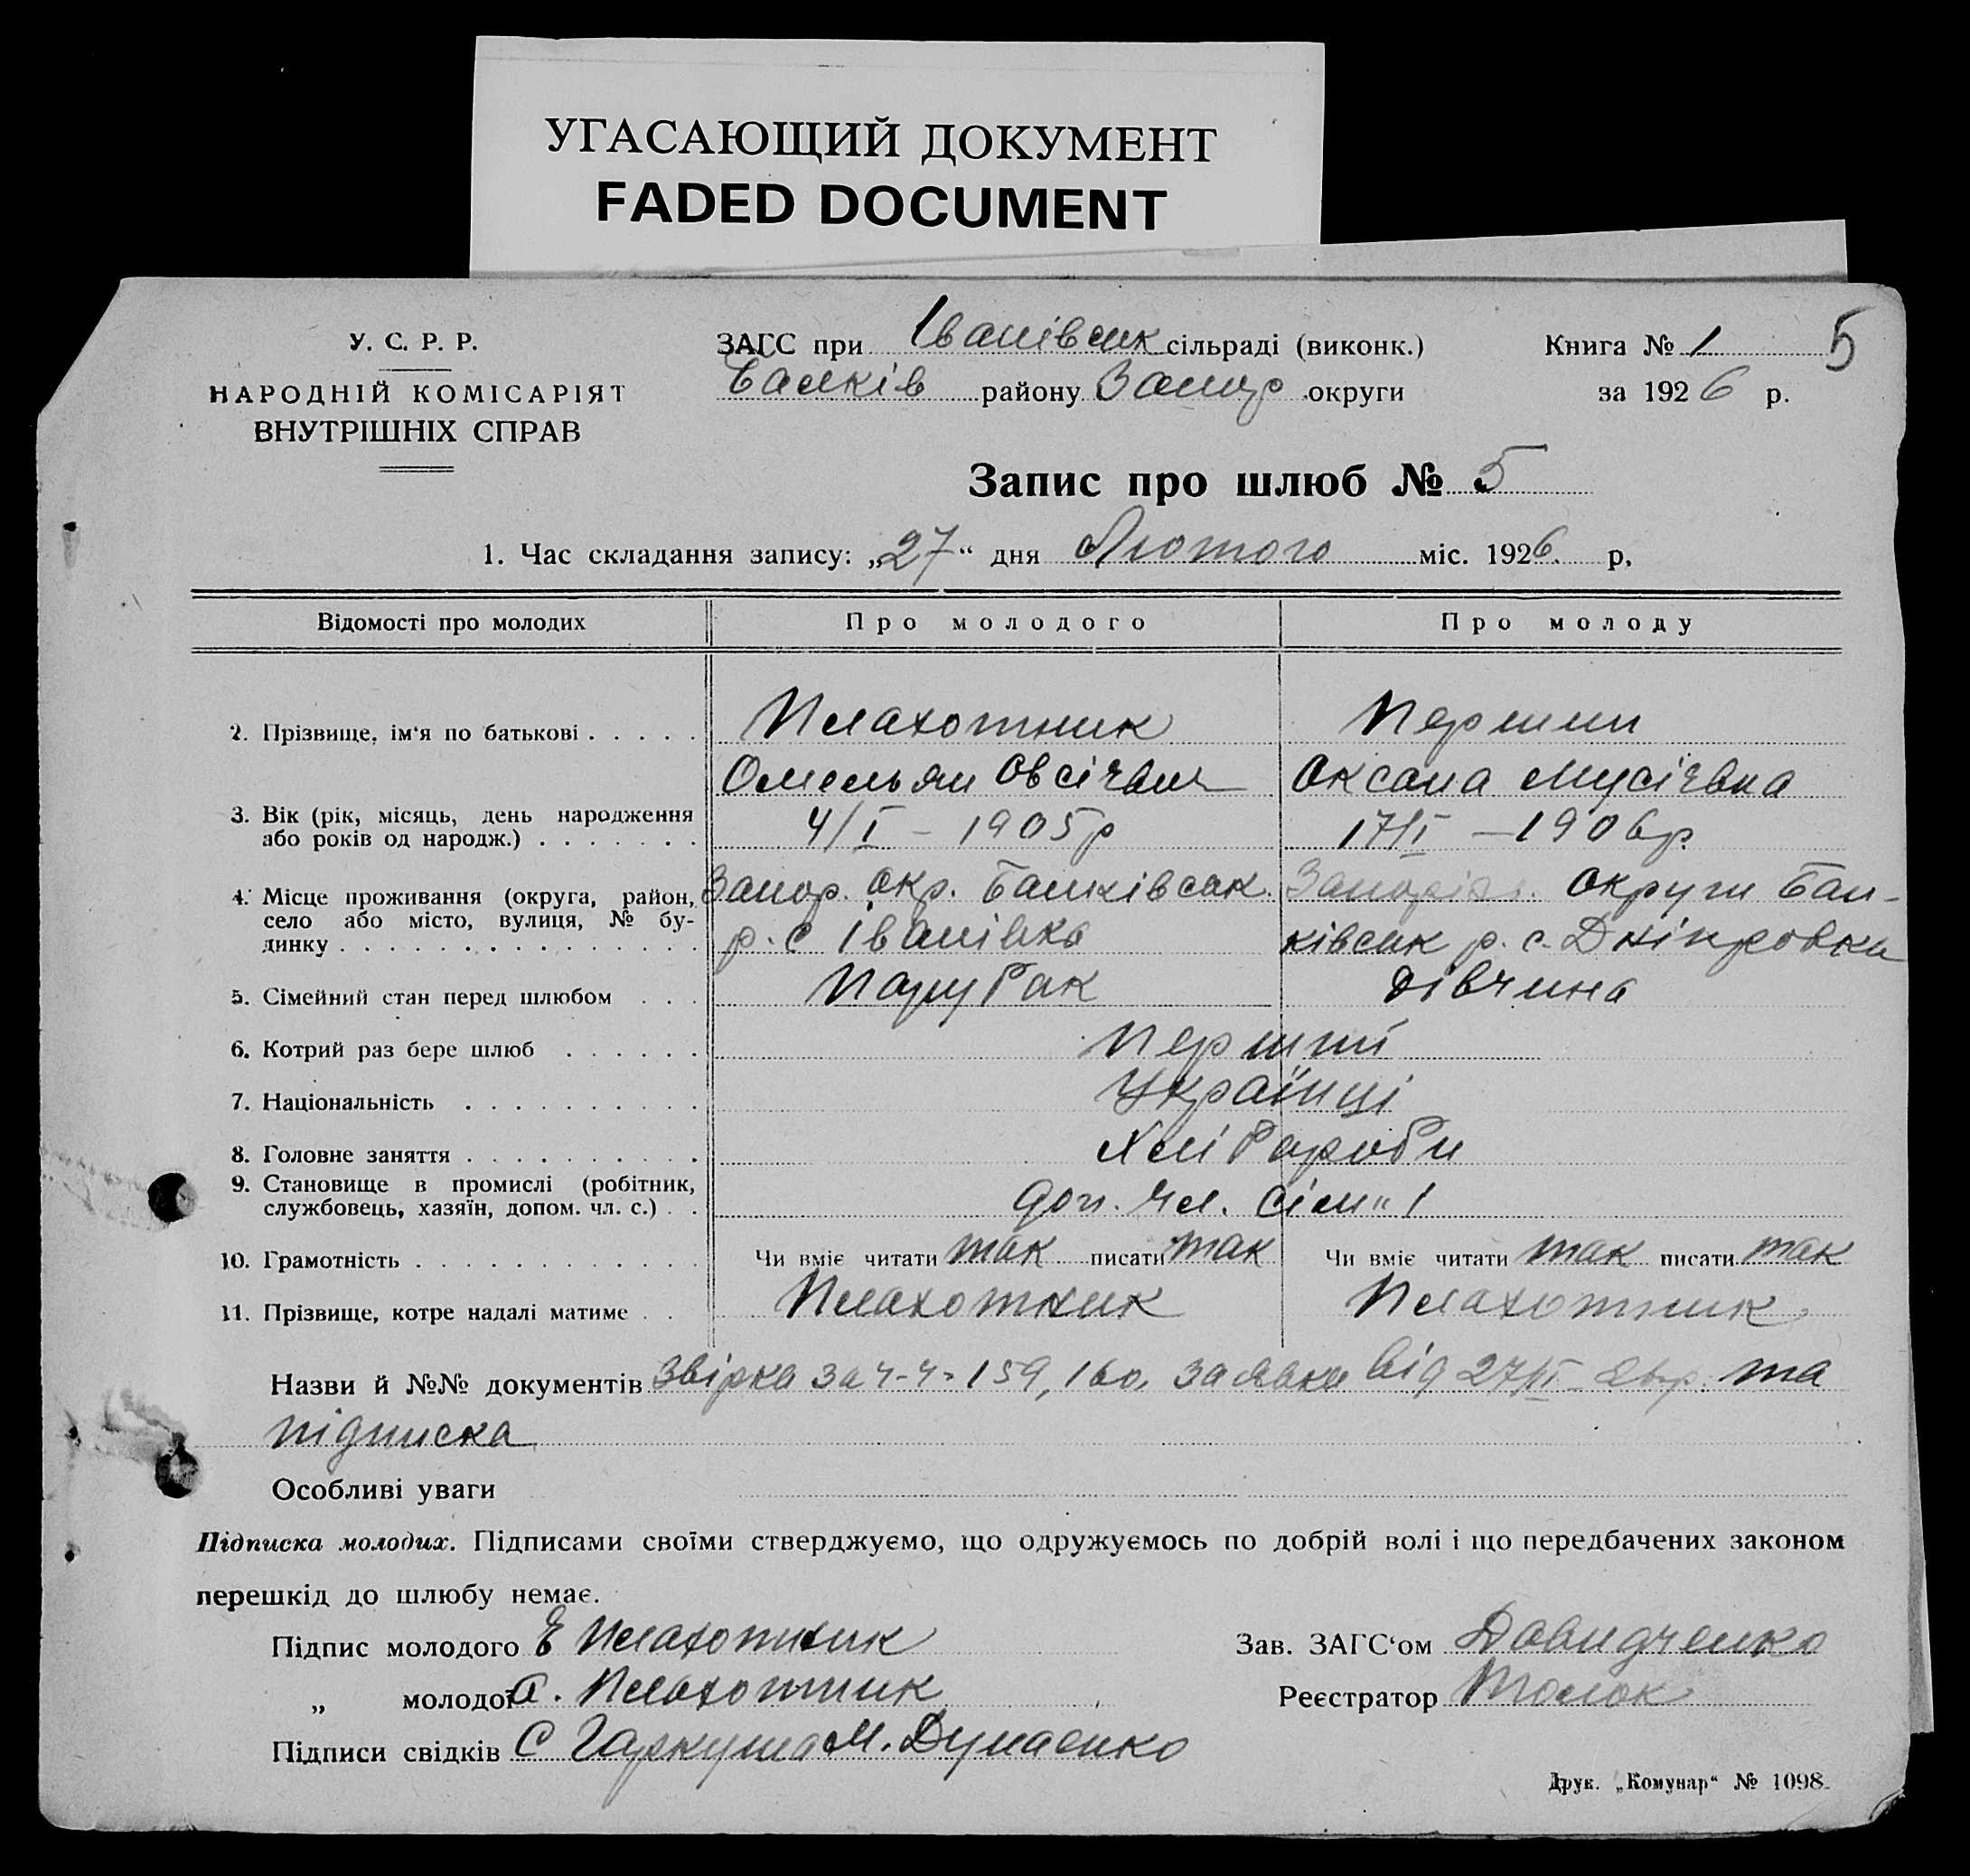 УГАСАЮЩИЙ ДОКУМЕНТ
FADED DOCUMENT
У. С. Р. Р.
НАРОДНІЙ КОМІСАРІЯТ
ВНУТРІШНІХ СПРАВ
ЗАГС при Іванівськ сільраді (виконк.)
Балків району Запор округи
Книга № 1 5
за 1926 р.
Запис про шлюб № 5
1. Час складання запису: „27“ дня Лютого міс. 1926. р,
Відомості про молодих Про молодого Про молоду
2. Прізвище, ім‘я по батькові Плахотник Першин
Омельян Овсієвич Оксана Мусієвна
3. Вік (рік, місяць, день народження
або років од народж.) 4/I – 1905р 17/I – 1906р.
4. Місце проживання (округа, район, Запор. окр. Балківськ. Запоріз. Округи Бал-
село або місто, вулиця, № бу- р. с Іванівка ківськ р. с. Дніпровка
динку
5. Сімейний стан перед шлюбом Парубак дівчина
6. Котрий раз бере шлюб Перший
7. Національність Українці
8. Головне заняття Хлібароби
9. Становище в промислі (робітник,
службовець, хазяїн, допом. чл. с.) доп. чл. сім" 1
10. Грамотність Чи вміє читати так писати так Чи вміє читати так писати так
11. Прізвище, котре надалі матиме Плахотник Плахотник
Назви й №№ документів Звірка за ч-ч- 159, 160, заявка від 27/II 26р. та
підписка
Особливі уваги
Підписка молодих. Підписами своїми стверджуємо, що одружуємось по добрій волі і що передбачених законом
перешкід до шлюбу немає.
Підпис молодого Е Плахотник Зав. ЗАГС‘ом Давидченко
„ молодої а. Плахотник Реєстратор Толок
Підписи свідків С Гаркуша М. Дунаенко
Друк. „Комунар“ № 1098.